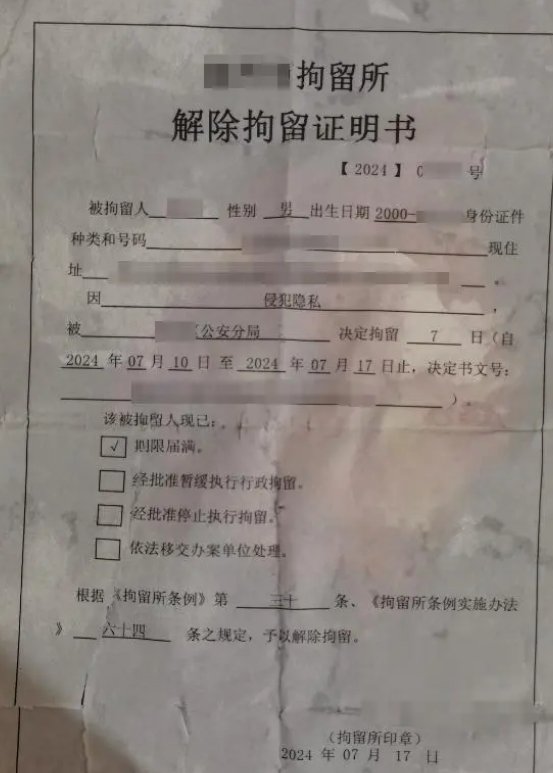 拘留所
解除拘留证明书
【 2024 】 号
被拘留人 性别 男 出生日期 2000- 身份证件
种类和号码 现住
址 。
因 侵犯隐私 ,
被 公安分局 决定拘留 7 日（自
2024 年 07 月 10 日 至 2024 年 07 月 17 日止，决定书文号：
）。
该被拘留人现已：
√ 期限届满。
经批准暂缓执行行政拘留。
经批准停止执行拘留。
依法移交办案单位处理。
根据《拘留所条例》第 三十 条、《拘留所条例实施办法
》 六十四 条之规定，予以解除拘留。
（拘留所印章）
2024 年 07 月 17 日